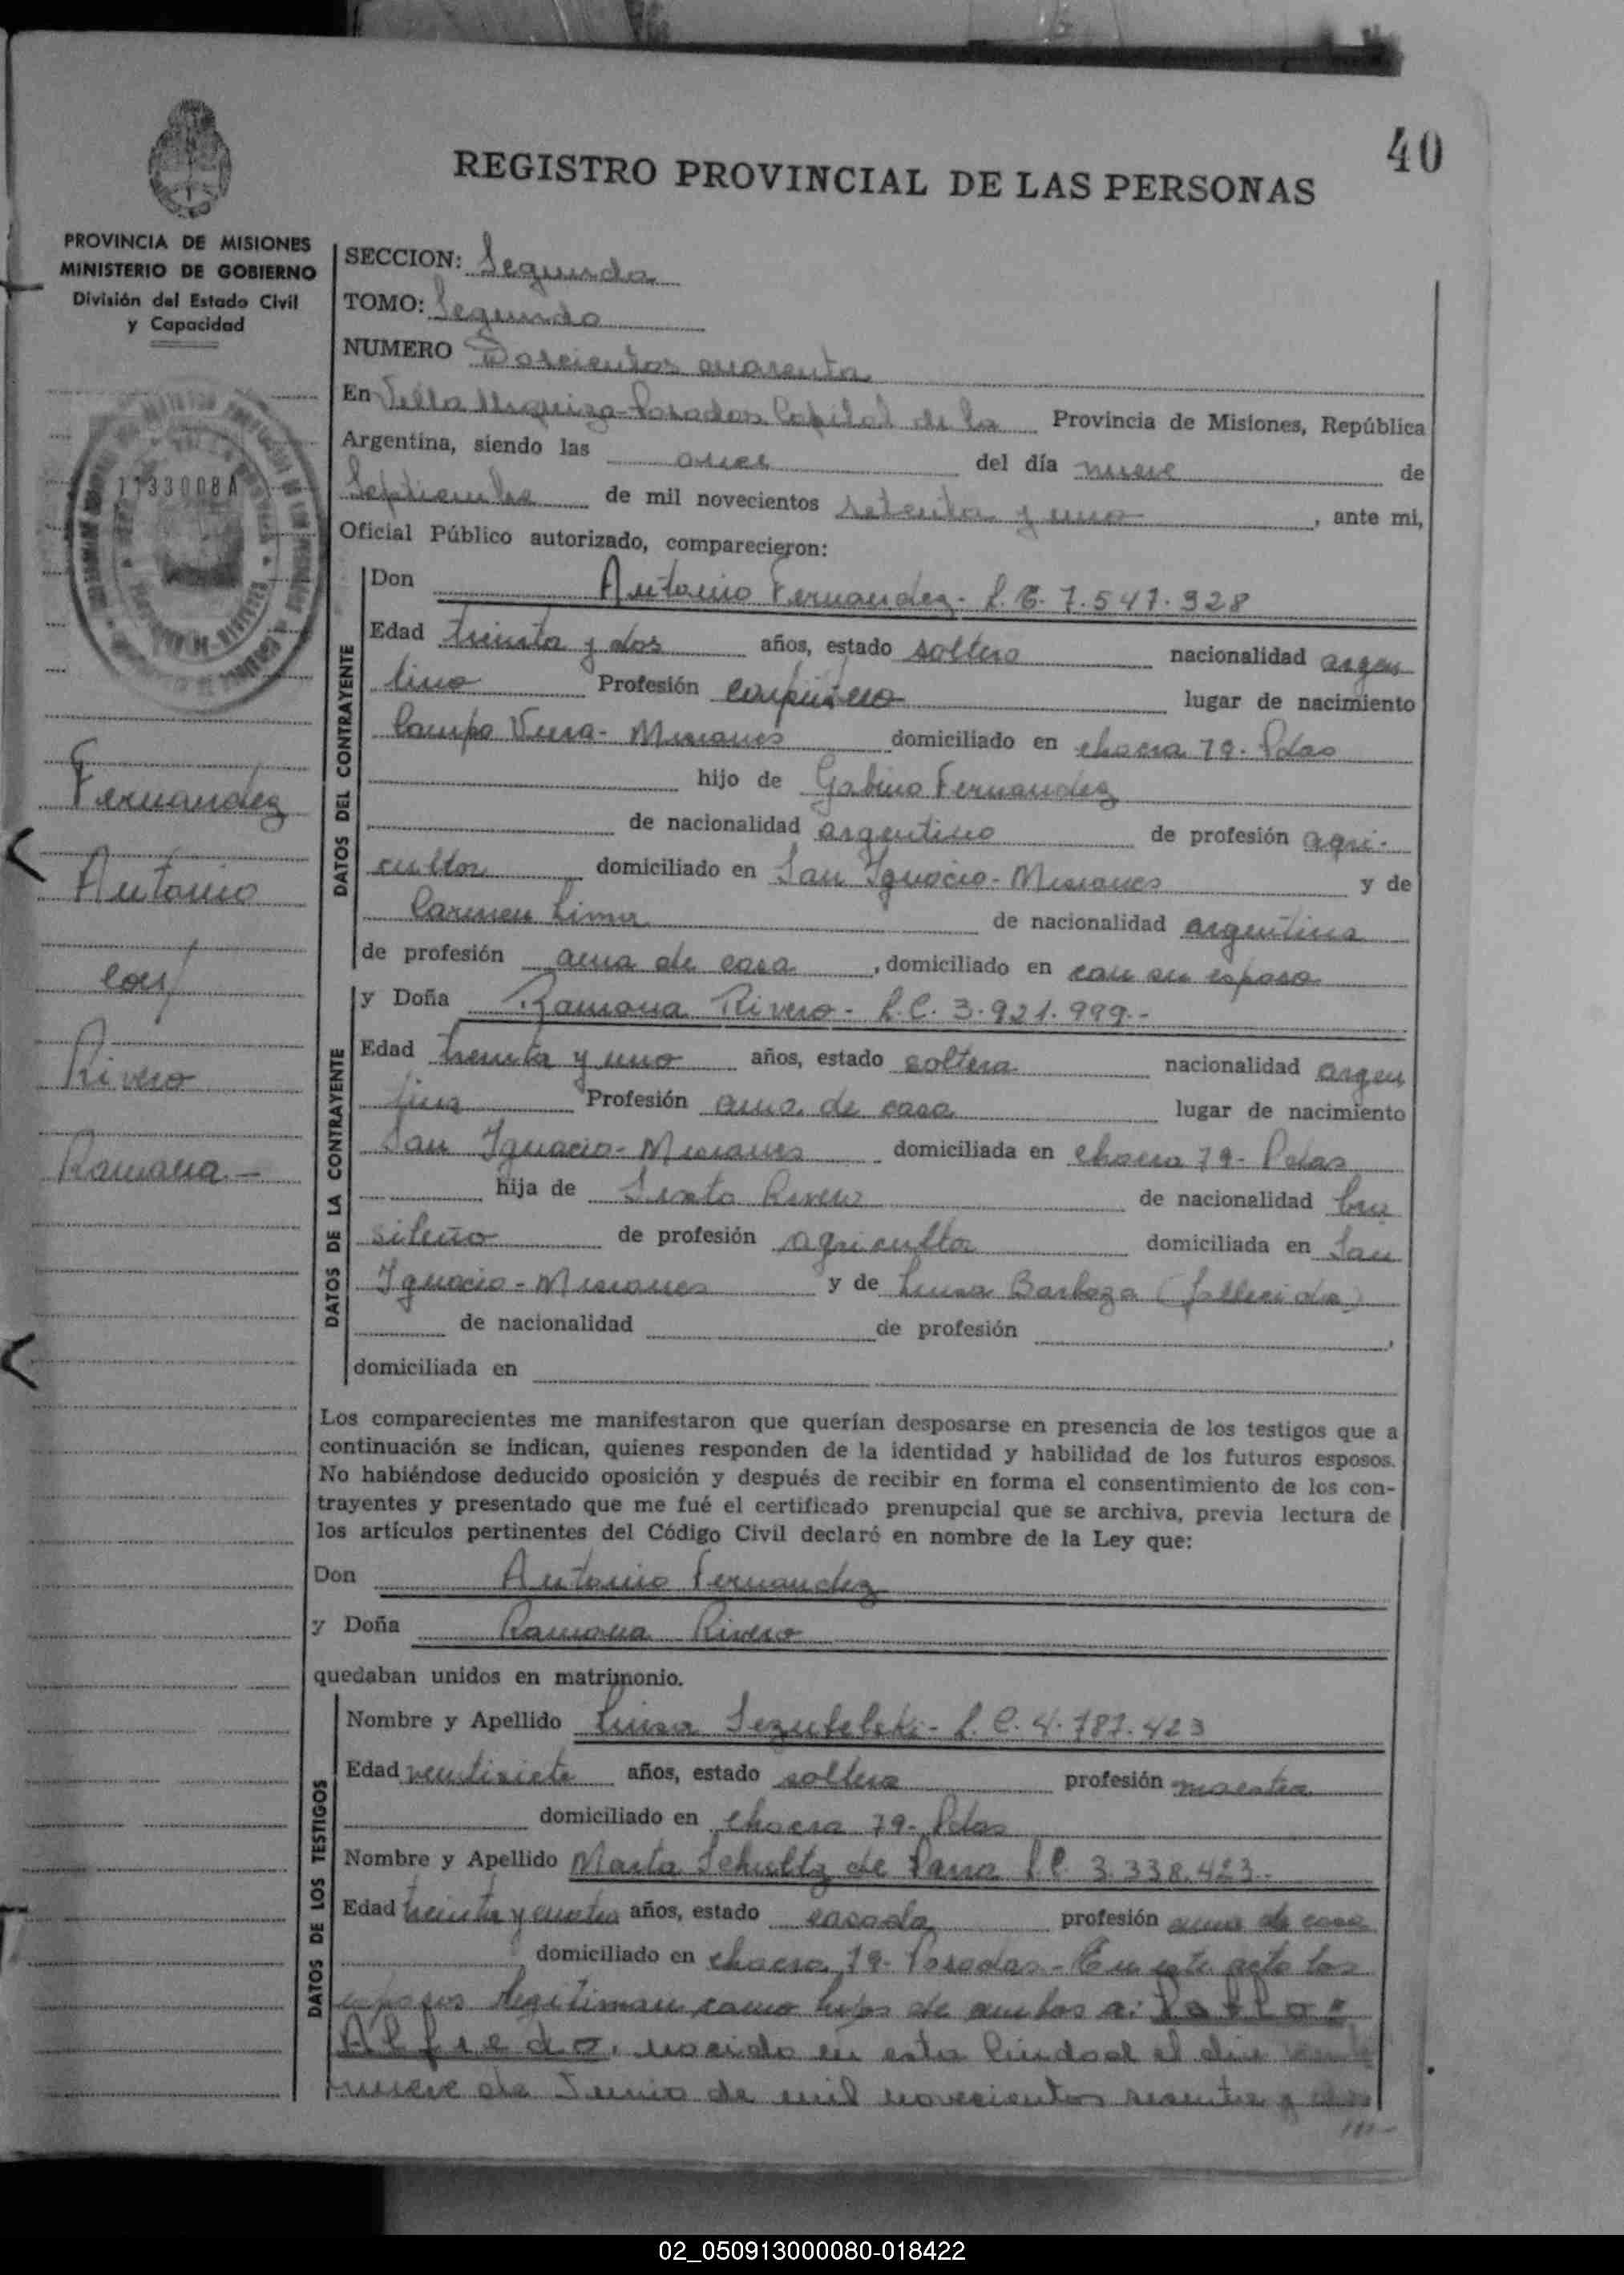 40
REGISTRO PROVINCIAL DE LAS PERSONAS
PROVINCIA DE MISIONES
MINISTERIO DE GOBIERNO
División del Estado Civil
y Capacidad
1133008A
SECCION: Segunda
TOMO: Segundo
NUMERO Doscientos cuarenta
En Villa Urquiza-Posadas Capital de la Provincia de Misiones, República
Argentina, siendo las once del día nueve de
Septiembre de mil novecientos setenta y uno, ante mi,
Oficial Público autorizado, comparecieron:
Fernandez
Antonio
con
Rivero
Ramona.-
DATOS DEL CONTRAYENTE
Don Antonio Fernandez- L.E. 7.541.928
Edad treinta y dos años, estado soltero nacionalidad argen
tino Profesión carpintero lugar de nacimiento
Campo Viera- Misiones domiciliado en chacra 79- Pdas
hijo de Gabino Fernandez
de nacionalidad argentino de profesión agri-
cultor domiciliado en San Ignacio- Misiones y de
Carmen Lima de nacionalidad argentina
de profesión ama de casa, domiciliado en con su esposo
DATOS DE LA CONTRAYENTE
y Doña Ramona Rivero- L.C. 3.921.999.-
Edad treinta y uno años, estado soltera nacionalidad argen
tina Profesión ama de casa lugar de nacimiento
San Ignacio- Misiones domiciliada en chacra 79- Pdas
hija de Sixto Rivero de nacionalidad bra
sileño de profesión agricultor domiciliada en San
Ignacio- Misiones y de Luisa Barboza (fallecida)
de nacionalidad de profesión ,
domiciliada en
Los comparecientes me manifestaron que querían desposarse en presencia de los testigos que a
continuación se indican, quienes responden de la identidad y habilidad de los futuros esposos.
No habiéndose deducido oposición y después de recibir en forma el consentimiento de los con-
trayentes y presentado que me fué el certificado prenupcial que se archiva, previa lectura de
los artículos pertinentes del Código Civil declaró en nombre de la Ley que:
Don Antonio Fernandez
y Doña Ramona Rivero
quedaban unidos en matrimonio.
DATOS DE LOS TESTIGOS
Nombre y Apellido Luisa L.C. 4.787.423
Edad veintisiete años, estado soltera profesión maestra
domiciliado en chacra 79- Pdas
Nombre y Apellido Marta Schultz de Parra L.C. 3.338.423.-
Edad treinta y cuatro años, estado casada profesión ama de casa
domiciliado en chacra 79- Posadas- En este acto los
esposos legitiman como hijos de ambos a:
Alfredo, nacido en esta Ciudad el día
nueve de Junio de mil novecientos sesenta y
02_050913000080-018422